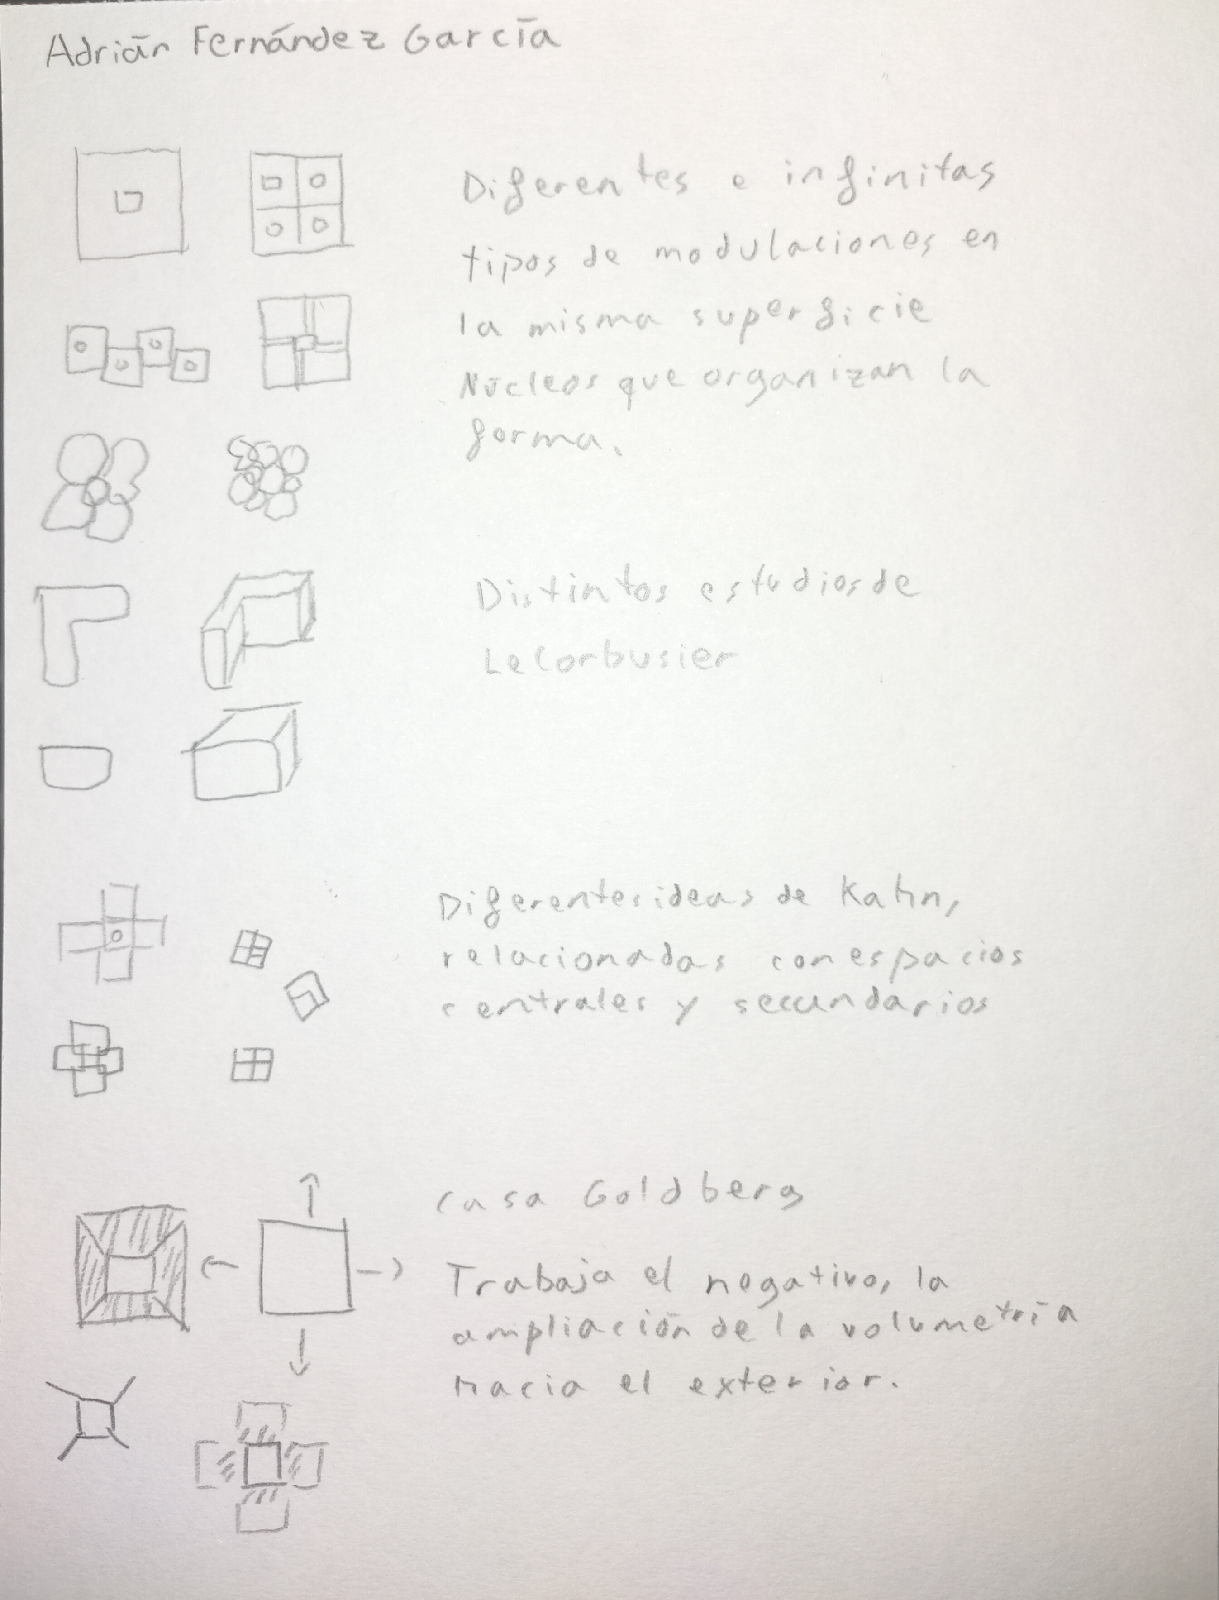 Adrián Fernández García
Diferentes e infinitas
tipos de modulaciones en
la misma superficie
Núcleos que organizan la
forma.
Distintos estudios de
Le Corbusier
Diferentes ideas de Kahn,
relacionadas con espacios
centrales y secundarios
Casa Goldberg
Trabaja el negativo, la
ampliación de la volumetría
hacia el exterior.